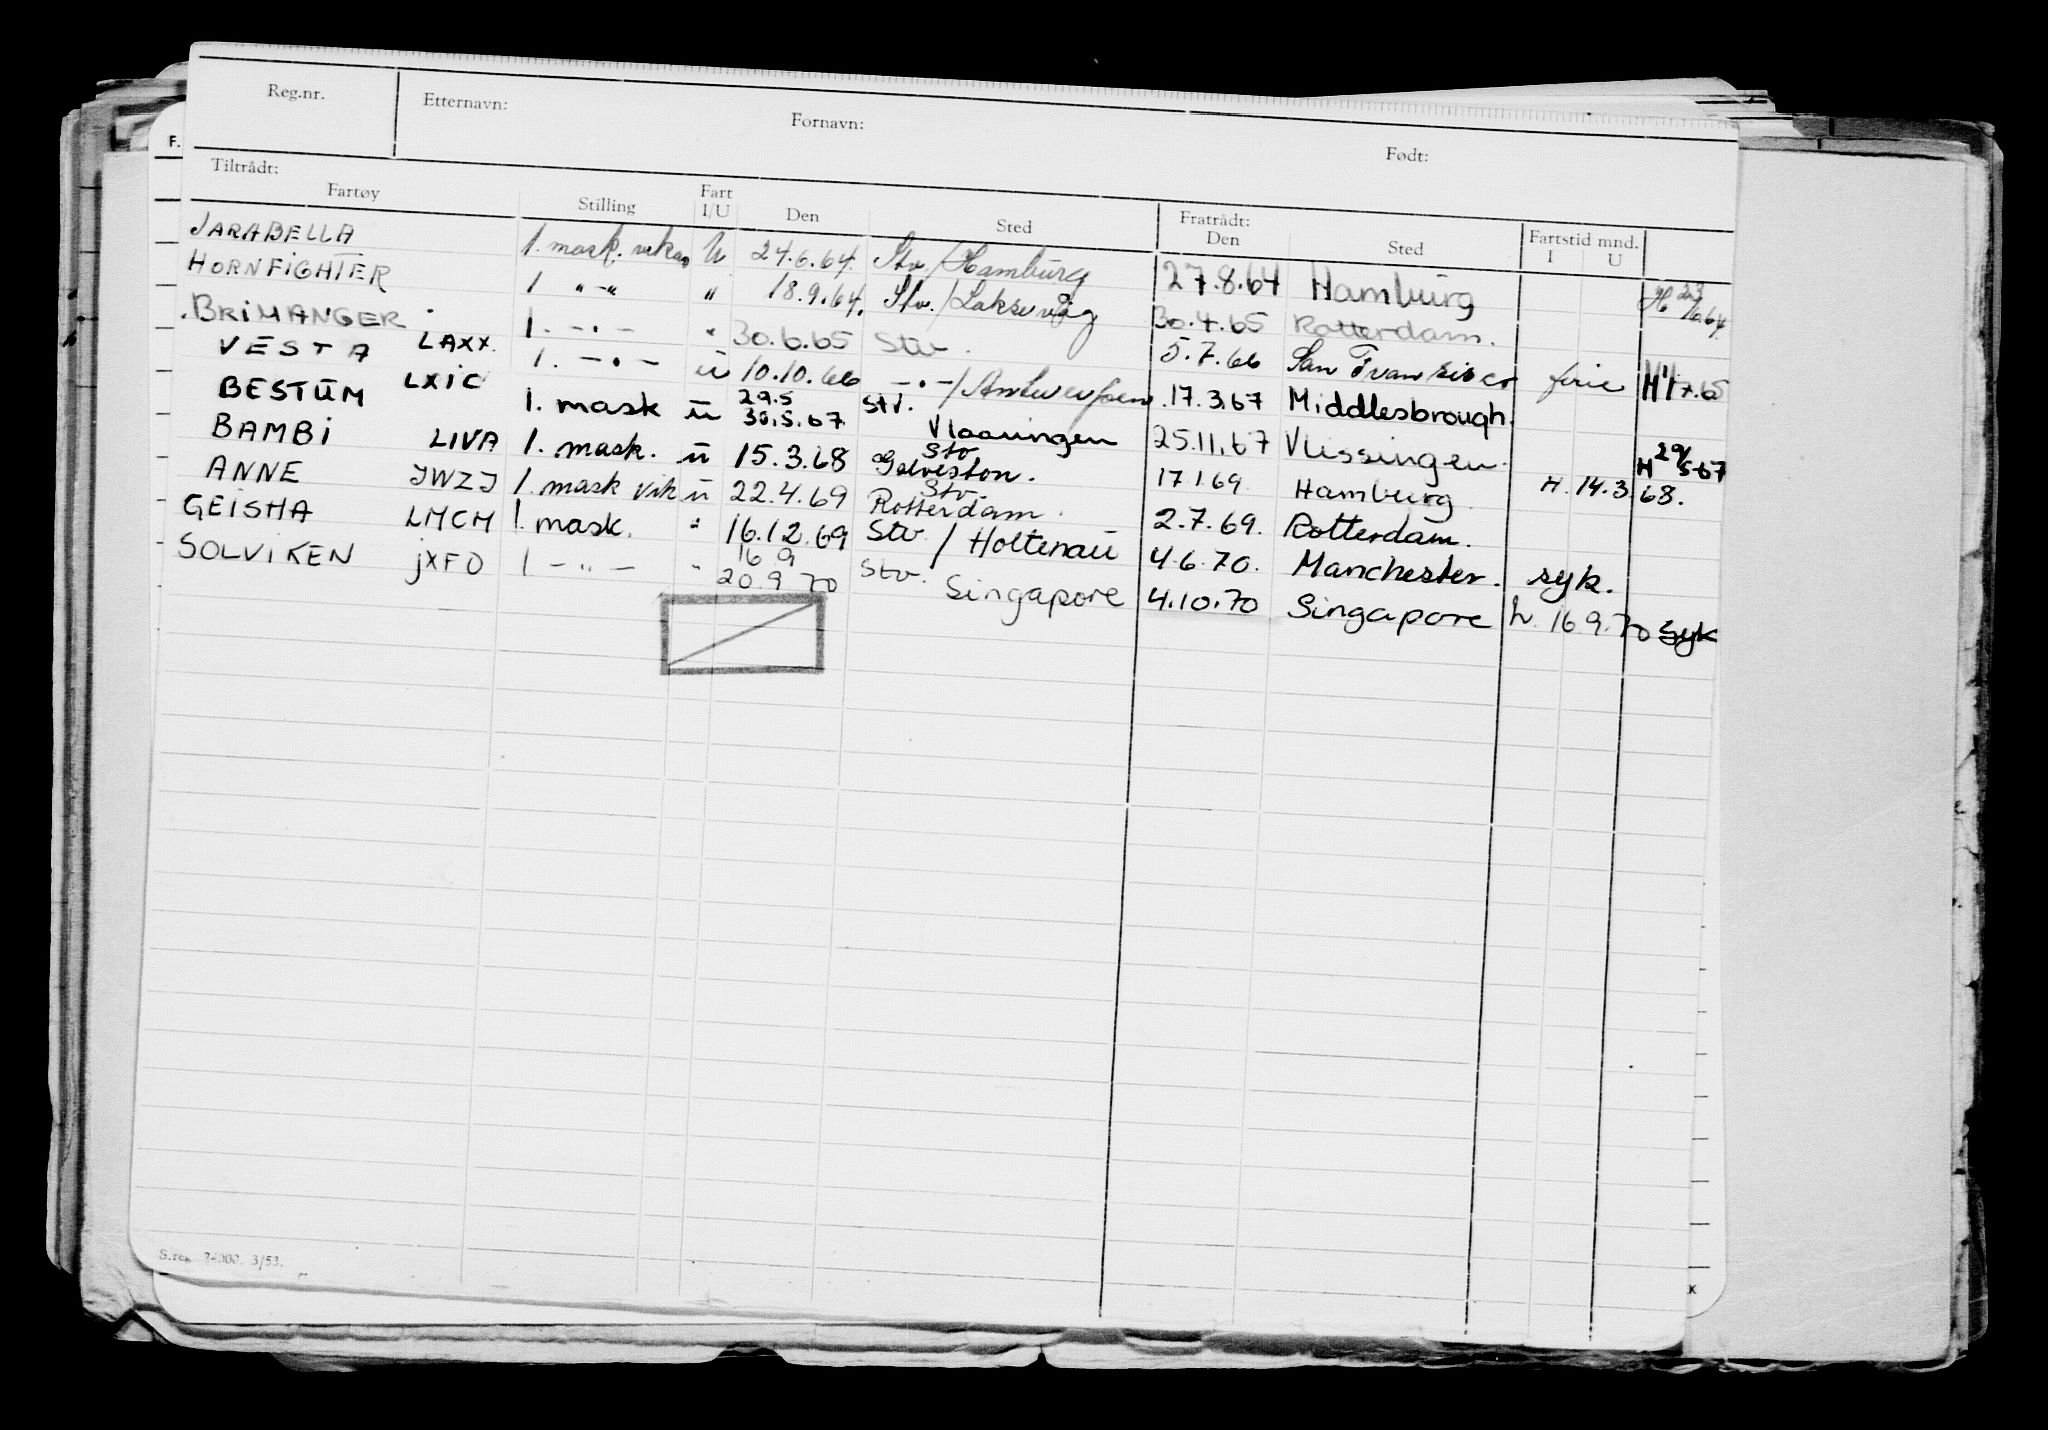 Reg.nr. Etternavn: Fornavn: Født:
F.
Tiltrådt: Fratrådt:
Fartøy Stilling Fart I/U Den Sted Den Sted Fartstid mnd. I U
JARABELLA 1. mask. vikar U 24.6.64. Stv./Hamburg 27.8.64 Hamburg H 23/6.64
HORNFIGHTER 1 "-" " 18.9.64. Stv./Laksevåg 30.4.65 Rotterdam.
BRIMANGER LAXX. 1. -.- " 30.6.65 Stv. 5.7.66 San Francisco ferie H 1/7.65
VESTA LXIC 1. -.- ü 10.10.66 -.-/Antwerpen. 17.3.67 Middlesbrough.
BESTUM 1. mask ü 29.5 30.5.67 Stv. Vlaaringen 25.11.67 Vlissingen. H 29/5-67
BAMBI LIVA 1. mask. ü 15.3.68 Stv Galveston. 17.1.69. Hamburg. H. 14.3.68.
ANNE JWZJ 1. mask vik ü 22.4.69 Stv. Rotterdam. 2.7.69. Rotterdam.
GEISHA LMCM 1. mask. " 16.12.69 Stv / Holtenau 4.6.70. Manchester. syk.
SOLVIKEN JXFO 1 - " - " 16 9 20.9.70 Stv. Singapore 4.10.70 Singapore h. 16 9.70 syk
S.reg. 24000. 3/53.